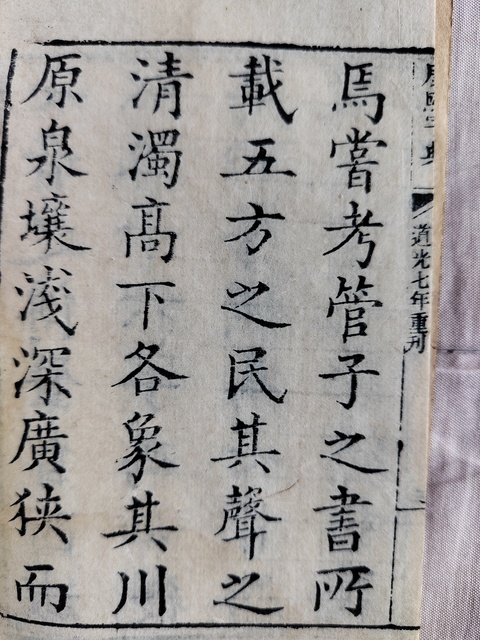 康熙字典
道光七年重刊
焉嘗考管子之書所
載五方之民其聲之
清濁高下各象其川
原泉壤淺深廣狹而